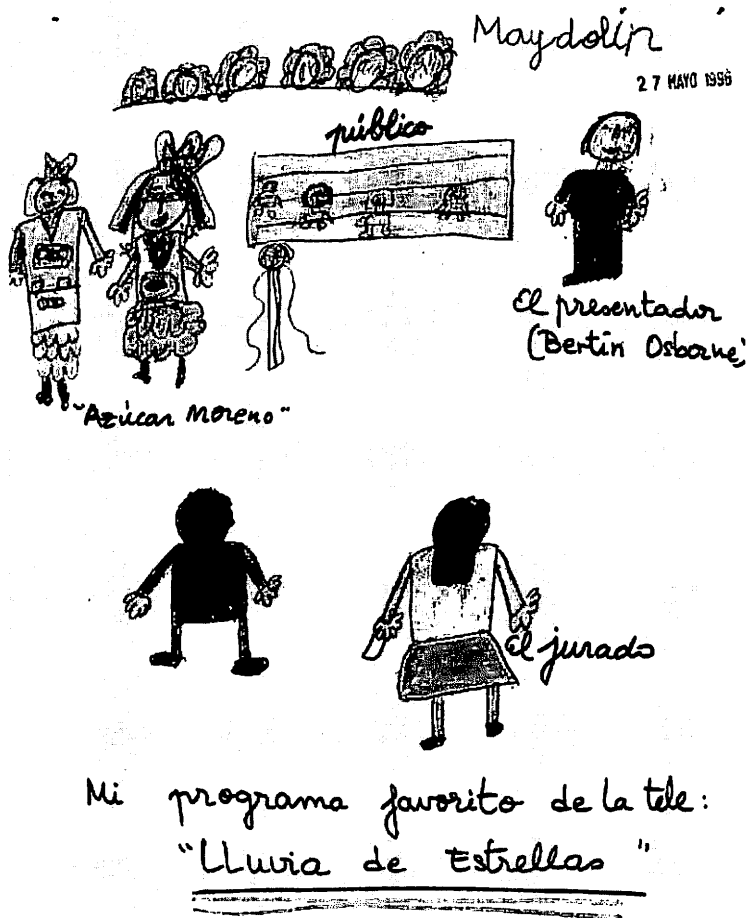 Maydolín
27 MAYO 1996
público
El presentador
(Bertín Osborne)
"Azúcar Moreno"
El jurado
Mi programa favorito de la tele:
"LLuvia de Estrellas"